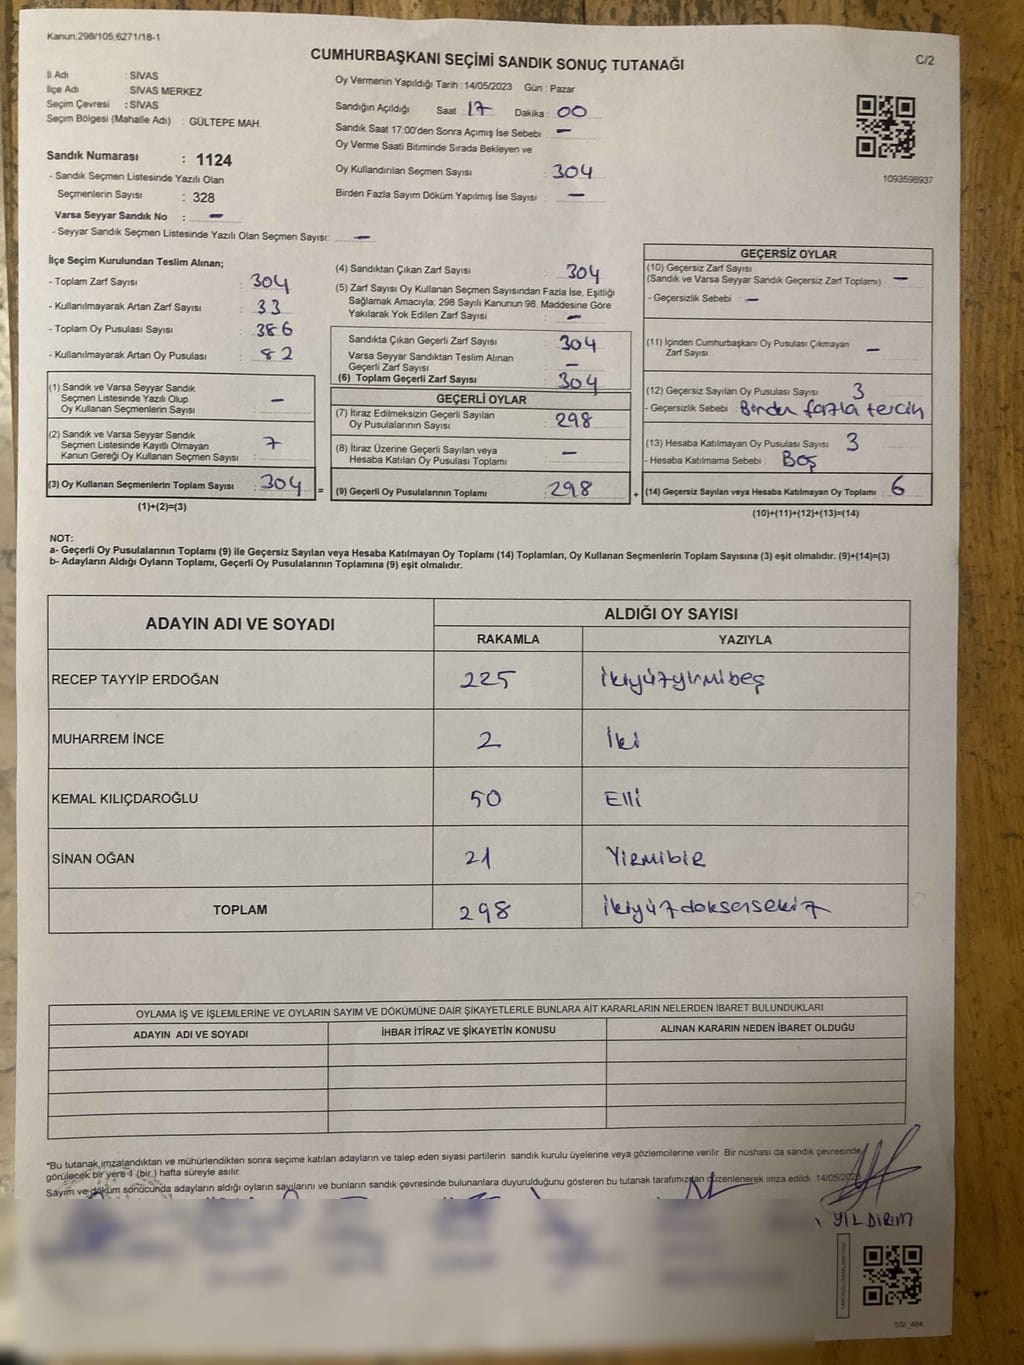 Kanun:298/105,6271/18-1
C/2
CUMHURBAŞKANI SEÇİMİ SANDIK SONUÇ TUTANAĞI
İl Adı : SİVAS
İlçe Adı : SİVAS MERKEZ
Seçim Çevresi : SİVAS
Seçim Bölgesi (Mahalle Adı) : GÜLTEPE MAH.
Sandık Numarası : 1124
- Sandık Seçmen Listesinde Yazılı Olan
Seçmenlerin Sayısı : 328
Varsa Seyyar Sandık No : —
- Seyyar Sandık Seçmen Listesinde Yazılı Olan Seçmen Sayısı: —
Oy Vermenin Yapıldığı Tarih : 14/05/2023 Gün : Pazar
Sandığın Açıldığı Saat 17 Dakika : 00
Sandık Saat 17:00'den Sonra Açımış İse Sebebi : —
Oy Verme Saati Bitiminde Sırada Bekleyen ve
Oy Kullandırılan Seçmen Sayısı : 304
Birden Fazla Sayım Döküm Yapılmış İse Sayısı : —
1093598937
İlçe Seçim Kurulundan Teslim Alınan;
- Toplam Zarf Sayısı : 304
- Kullanılmayarak Artan Zarf Sayısı : 33
- Toplam Oy Pusulası Sayısı : 386
- Kullanılmayarak Artan Oy Pusulası : 82
(1) Sandık ve Varsa Seyyar Sandık
Seçmen Listesinde Yazılı Olup
Oy Kullanan Seçmenlerin Sayısı : —
(2) Sandık ve Varsa Seyyar Sandık
Seçmen Listesinde Kayıtlı Olmayan
Kanun Gereği Oy Kullanan Seçmen Sayısı : 7
(3) Oy Kullanan Seçmenlerin Toplam Sayısı : 304
(1)+(2)=(3)
(4) Sandıktan Çıkan Zarf Sayısı : 304
(5) Zarf Sayısı Oy Kullanan Seçmen Sayısından Fazla İse, Eşitliği
Sağlamak Amacıyla; 298 Sayılı Kanunun 98. Maddesine Göre
Yakılarak Yok Edilen Zarf Sayısı : —
Sandıkta Çıkan Geçerli Zarf Sayısı : 304
Varsa Seyyar Sandıktan Teslim Alınan
Geçerli Zarf Sayısı : —
(6) Toplam Geçerli Zarf Sayısı : 304
GEÇERLİ OYLAR
(7) İtiraz Edilmeksizin Geçerli Sayılan
Oy Pusulalarının Sayısı : 298
(8) İtiraz Üzerine Geçerli Sayılan veya
Hesaba Katılan Oy Pusulası Toplamı : —
= (9) Geçerli Oy Pusulalarının Toplamı : 298
GEÇERSİZ OYLAR
(10) Geçersiz Zarf Sayısı
(Sandık ve Varsa Seyyar Sandık Geçersiz Zarf Toplamı) : —
- Geçersizlik Sebebi : —
(11) İçinden Cumhurbaşkanı Oy Pusulası Çıkmayan
Zarf Sayısı : —
(12) Geçersiz Sayılan Oy Pusulası Sayısı : 3
- Geçersizlik Sebebi : Birden fazla tercih
(13) Hesaba Katılmayan Oy Pusulası Sayısı : 3
- Hesaba Katılmama Sebebi : Boş
+ (14) Geçersiz Sayılan veya Hesaba Katılmayan Oy Toplamı : 6
(10)+(11)+(12)+(13)=(14)
NOT:
a- Geçerli Oy Pusulalarının Toplamı (9) ile Geçersiz Sayılan veya Hesaba Katılmayan Oy Toplamı (14) Toplamları, Oy Kullanan Seçmenlerin Toplam Sayısına (3) eşit olmalıdır. (9)+(14)=(3)
b- Adayların Aldığı Oyların Toplamı, Geçerli Oy Pusulalarının Toplamına (9) eşit olmalıdır.
ADAYIN ADI VE SOYADI ALDIĞI OY SAYISI
RAKAMLA YAZIYLA
RECEP TAYYİP ERDOĞAN 225 İkiyüzyirmibeş
MUHARREM İNCE 2 İki
KEMAL KILIÇDAROĞLU 50 Elli
SİNAN OĞAN 21 Yirmibir
TOPLAM 298 İkiyüzdoksensekiz
OYLAMA İŞ VE İŞLEMLERİNE VE OYLARIN SAYIM VE DÖKÜMÜNE DAİR ŞİKAYETLERLE BUNLARA AİT KARARLARIN NELERDEN İBARET BULUNDUKLARI
ADAYIN ADI VE SOYADI İHBAR İTİRAZ VE ŞİKAYETİN KONUSU ALINAN KARARIN NEDEN İBARET OLDUĞU
*Bu tutanak imzalandıktan ve mühürlendikten sonra seçime katılan adayların ve talep eden siyasi partilerin sandık kurulu üyelerine veya gözlemcilerine verilir. Bir nüshası da sandık çevresinde
görülecek bir yere 1 (bir ) hafta süreyle asılır.
Sayım ve döküm sonucunda adayların aldığı oyların sayılarını ve bunların sandık çevresinde bulunanlara duyurulduğunu gösteren bu tutanak tarafımızdan düzenlenerek imza edildi. 14/05/2023
YILDIRIM
SSI_404